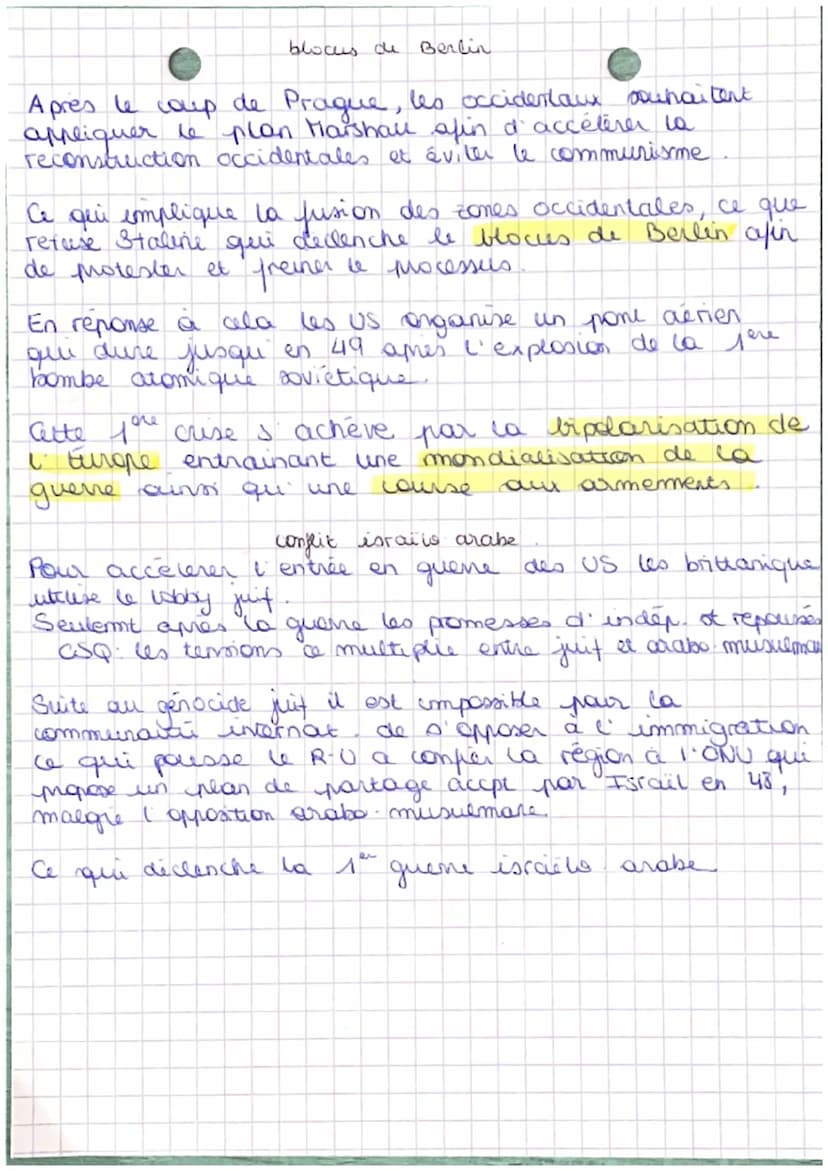 blocus de Berlin
Après le coup de Prague, les occidentaux souhaitent
appliquer le plan Marshall afin d'accélérer la
reconstruction occidentales et éviter le communisme.
Ce qui implique la fusion des zones occidentales, ce que
refuse Staline qui déclenche le blocus de Berlin afin
de protester et freiner le processus.
En réponse à cela les US organise un pont aérien
qui dure jusqu'en 49 après l'explosion de la 1ère
bombe atomique soviétique.
Cette 1ère crise s'achève par la bipolarisation de
l'Europe entrainant une mondialisation de la
guerre ainsi qu'une course aux armements.
conflit israëlo arabe.
Pour accélerer l'entrée en guerre des US les brittanique
utilise le lobby juif.
Seulemnt après la guerre les promesses d'indép. st repoussés
CSQ: les tensions ce multiplie entre juif et arabo-musulman
Suite au génocide juif il est impossible pour la
communauté internat. de s'opposer à l'immigration
ce qui pousse le R-U a confier la région à l'ONU qui
propose un plan de partage accpt par Israël en 48,
malgré l'opposition arabo-musulmane.
Ce qui déclenche la 1er guerre israëlo-arabe